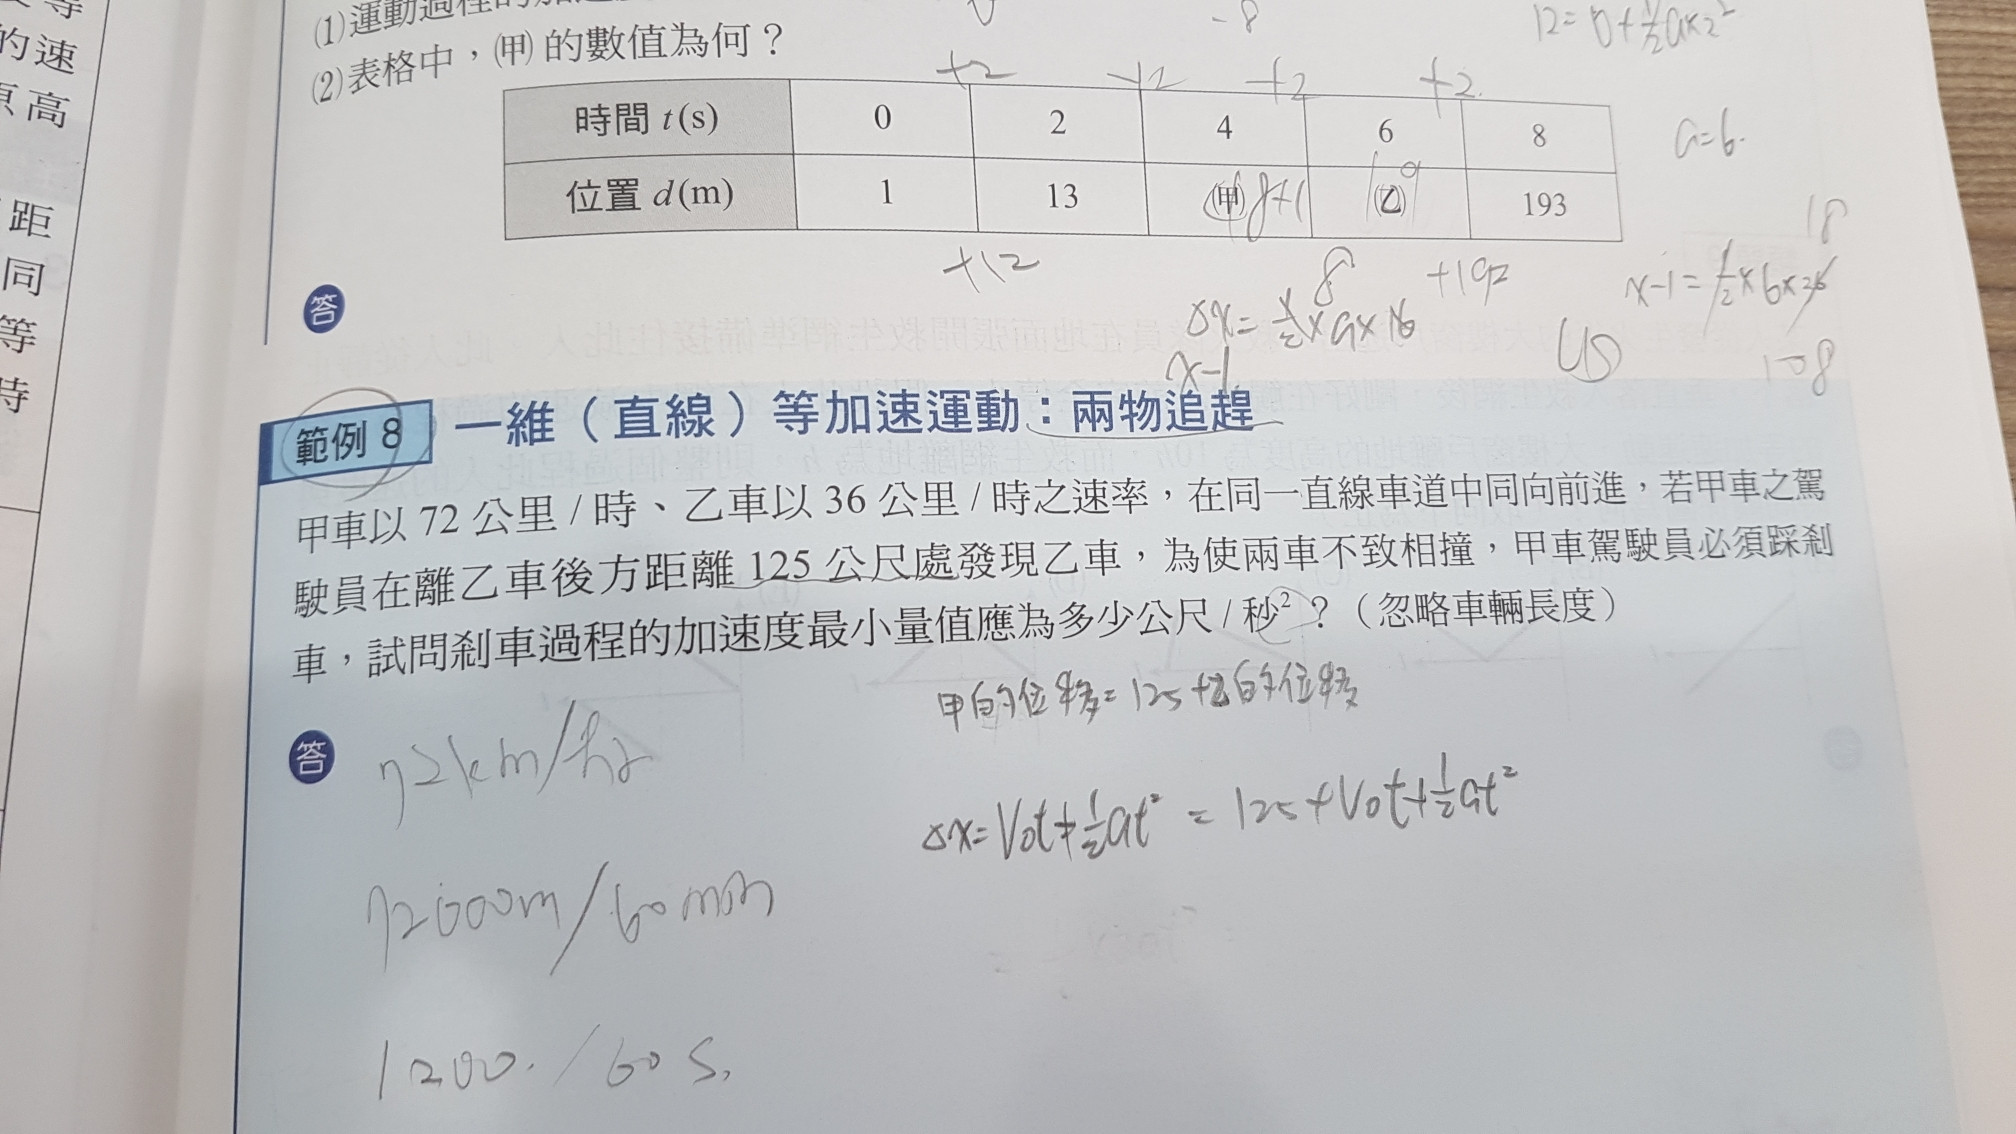 的速
原高
距
同
等
時
(1)運動過程的加速
-8
12=0+½a×2²
(2)表格中，(甲)的數值為何？
+2 +2 +2 +2
時間 t(s) 0 2 4 6 8
a=6
位置 d(m) 1 13 (甲) (乙) 193
+12
8
+192
18
x-1=½×6×36
108
答
Δx=½×a×16
x-1
範例 8 一維（直線）等加速運動：兩物追趕
甲車以 72 公里 / 時、乙車以 36 公里 / 時之速率，在同一直線車道中同向前進，若甲車之駕
駛員在離乙車後方距離 125 公尺處發現乙車，為使兩車不致相撞，甲車駕駛員必須踩剎
車，試問剎車過程的加速度最小量值應為多少公尺 / 秒²？（忽略車輛長度）
甲的位移=125+乙的位移
答
72km/hr
Δx=V₀t+½at²=125+V₀t+½at²
72000m/60min
1200./60s.